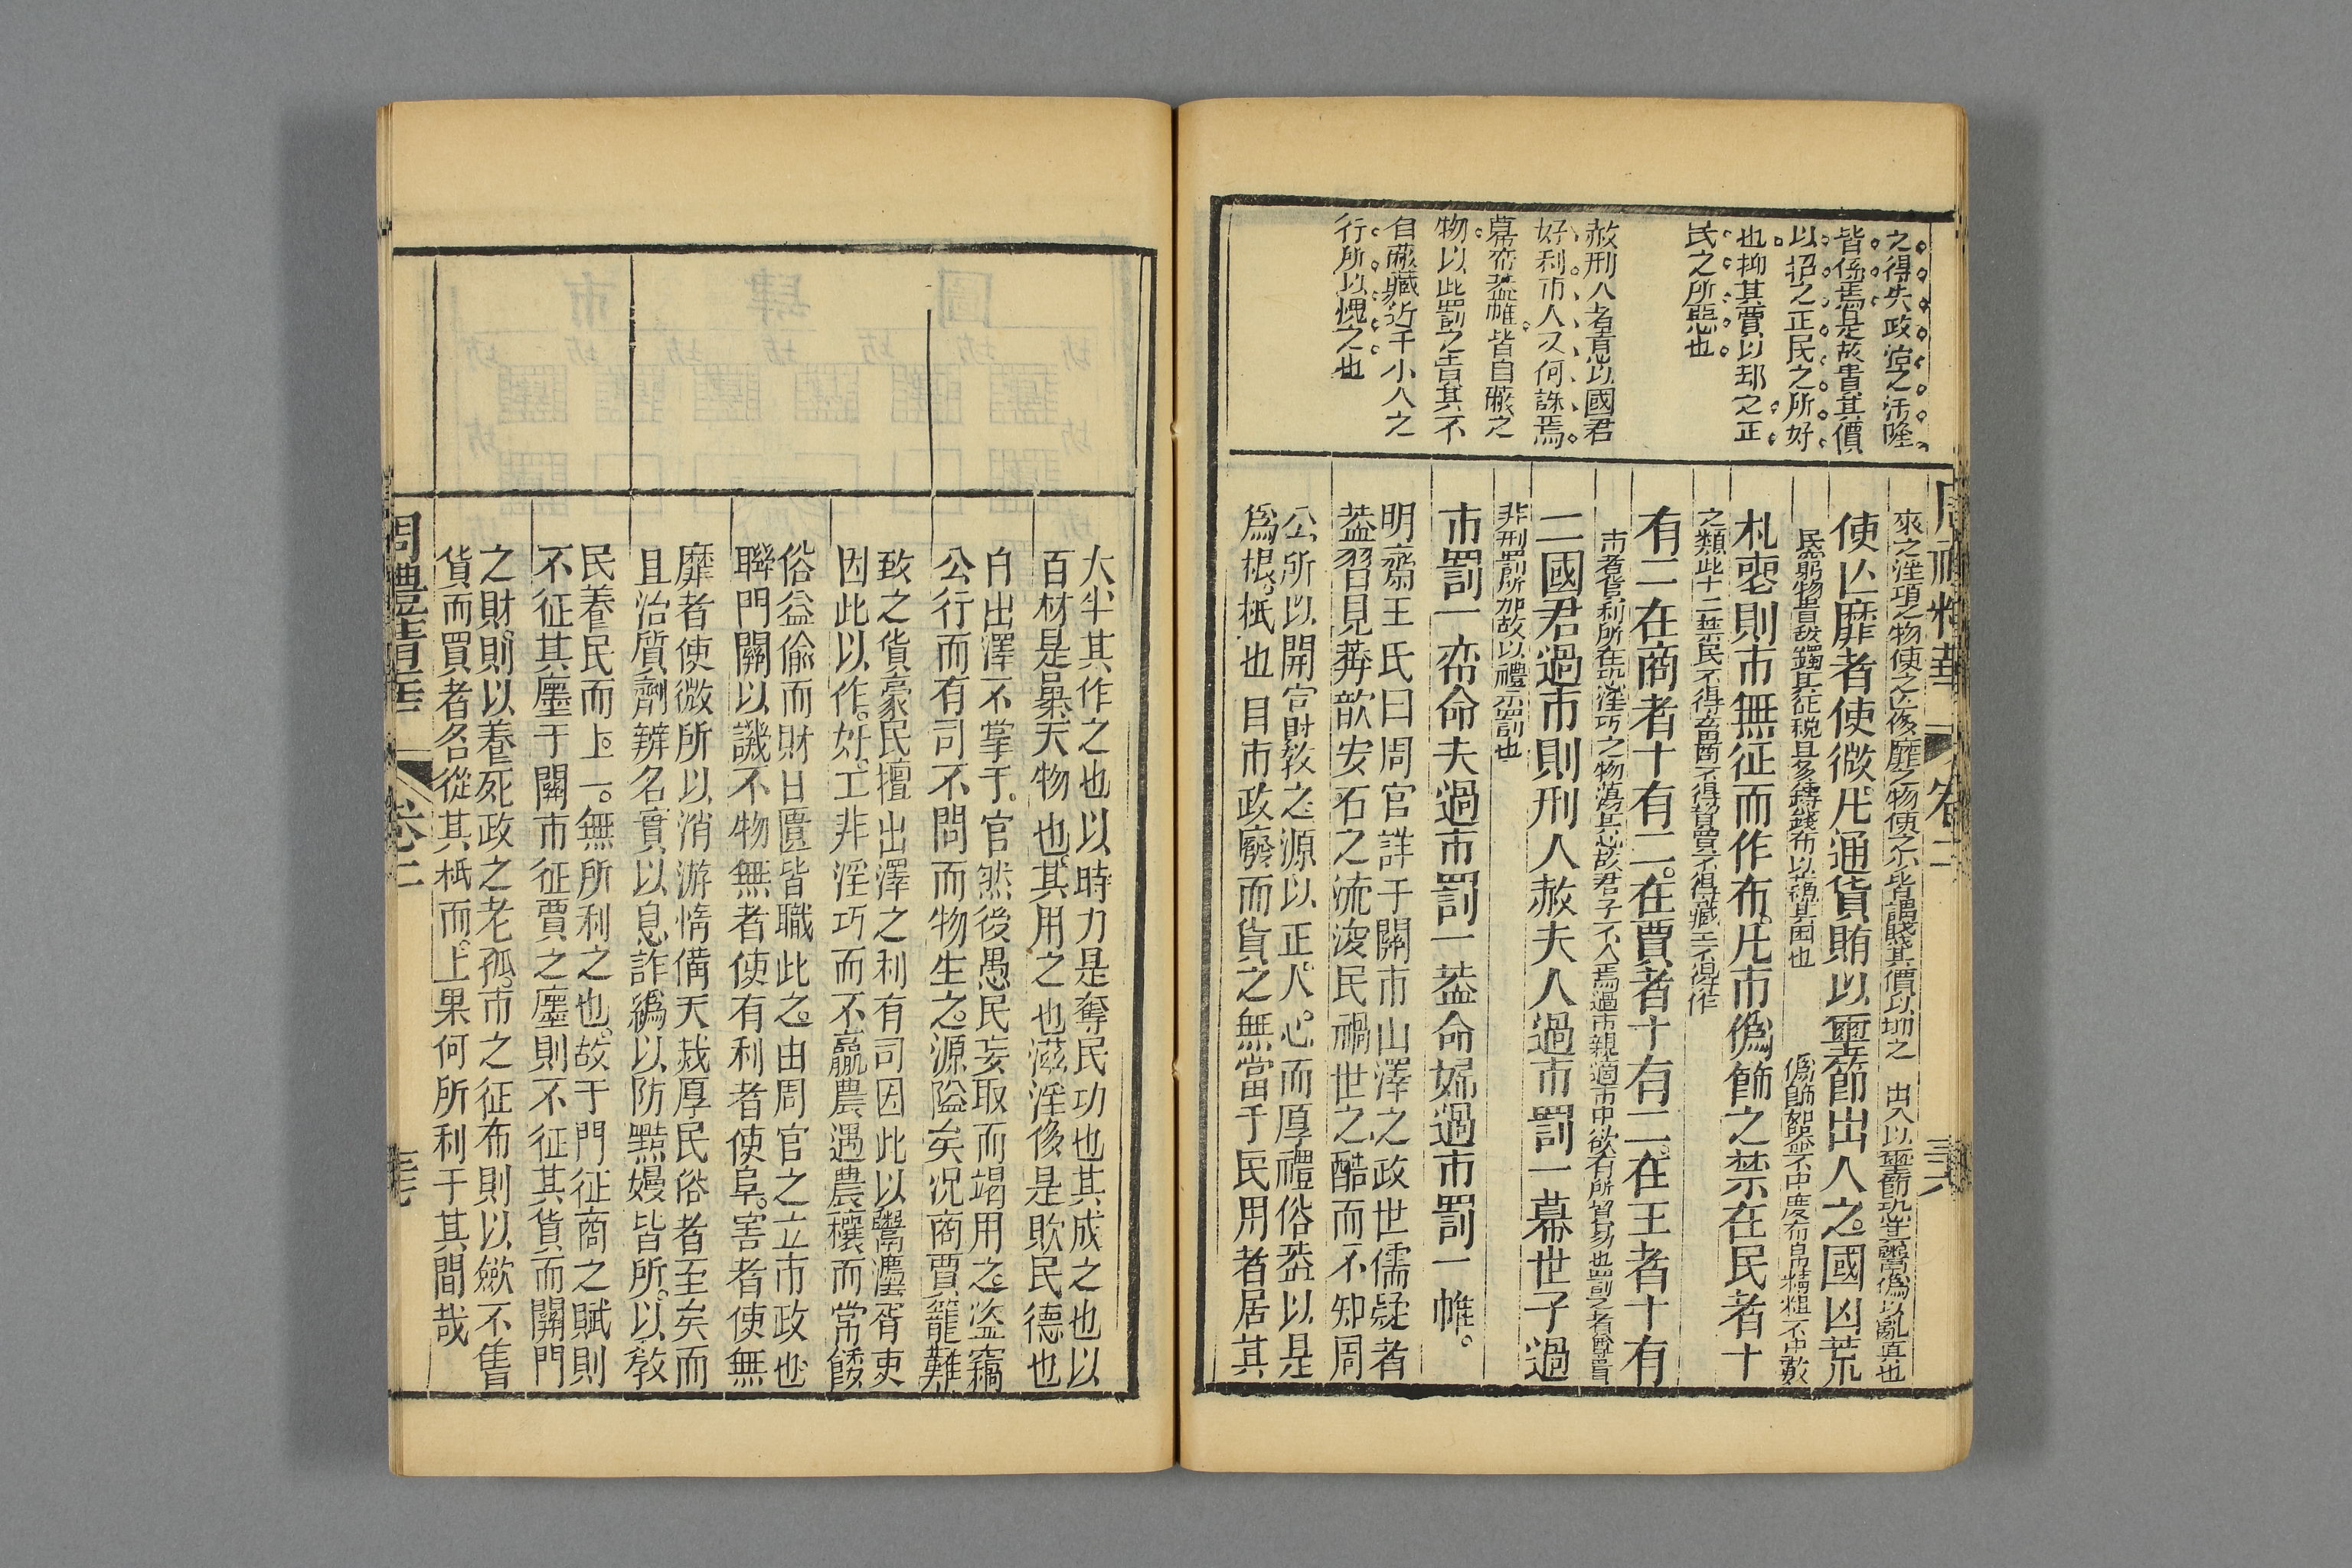 之得失政治之汙隆
皆係焉是故書其價
以招之正民之所好
也抑其賈以却之正
民之所惡也
赦刑人者意以國君
好利市人又何誅焉
幕帟蓋帷皆自蔽之
物以此罰之責其不
自蔽藏近于小人之
行所以愧之也
周禮精華
卷二
來之淫項之物使之亡侈靡之物使之不皆謂賤其價以抑之
出入以璽節恐其鬻僞以亂真也
使亡靡者使微凡通貨賄以璽節出入之國凶荒
民窮物貴故蠲其征稅且多鑄錢布以蘓其困也
僞飾如器不中度布帛精粗不中數
札喪則市無征而作布凡市僞飾之禁在民者十
之類此十二禁民不得畜商不得資賈不得藏工不得作
有二在商者十有二在賈者十有二在王者十有
市者貨利所在恐淫巧之物蕩其心故君子不入焉過市親適市中欲有所貿易也罰之者
二國君過市則刑人赦夫人過市罰一幕世子過
非刑罰所加故以禮示罰也
市罰一帟命夫過市罰一蓋命婦過市罰一帷
明齋王氏曰周官詳于關市山澤之政世儒疑者
蓋習見莽歆安石之流浚民禍世之酷而不知周
公所以開宮財教之源以正人心而厚禮俗葢以是
爲根柢也目市政廢而貨之無當于民用者居其
大半其作之也以時力是奪民功也其成之也以
百材是暴天物也其用之也滋淫侈是敗民德也
白出澤不掌于官然後愚民妄取而竭用之盜竊
公行而有司不問而物生之源隘矣况商賈籠難
致之貨豪民擅出澤之利有司因此以鬻廛胥吏
因此以作奸工非淫巧而不贏農遇農穰而常餒
俗益偸而財日匱皆職此之由周官之立市政也
聨門關以譏不物無者使有利者使阜害者使無
靡者使微所以消游惰備天烖厚民俗者至矣而
且治質劑辨名實以息詐僞以防黠嫚皆所以教
民養民而上一無所利之也故于門征商之賦則
不征其廛于關市征賈之廛則不征其貨而關門
之財則以養死政之老孤市之征布則以歛不售
貨而買者各從其柢而上果何所利于其間哉
周禮精華
卷二